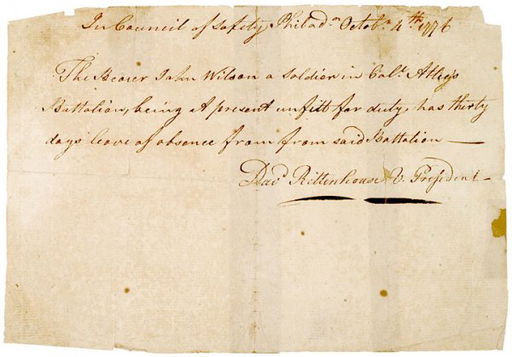 In Council of Safety Philadᵃ Octobʳ 4ᵗʰ 1776
The Bearer John Wilson a Soldier in Colˡ Atlee's
Battalion, being at present unfitt for duty, has thirty
days leave of absence from from said Battalion —
Davᵈ Rittenhouse V. President